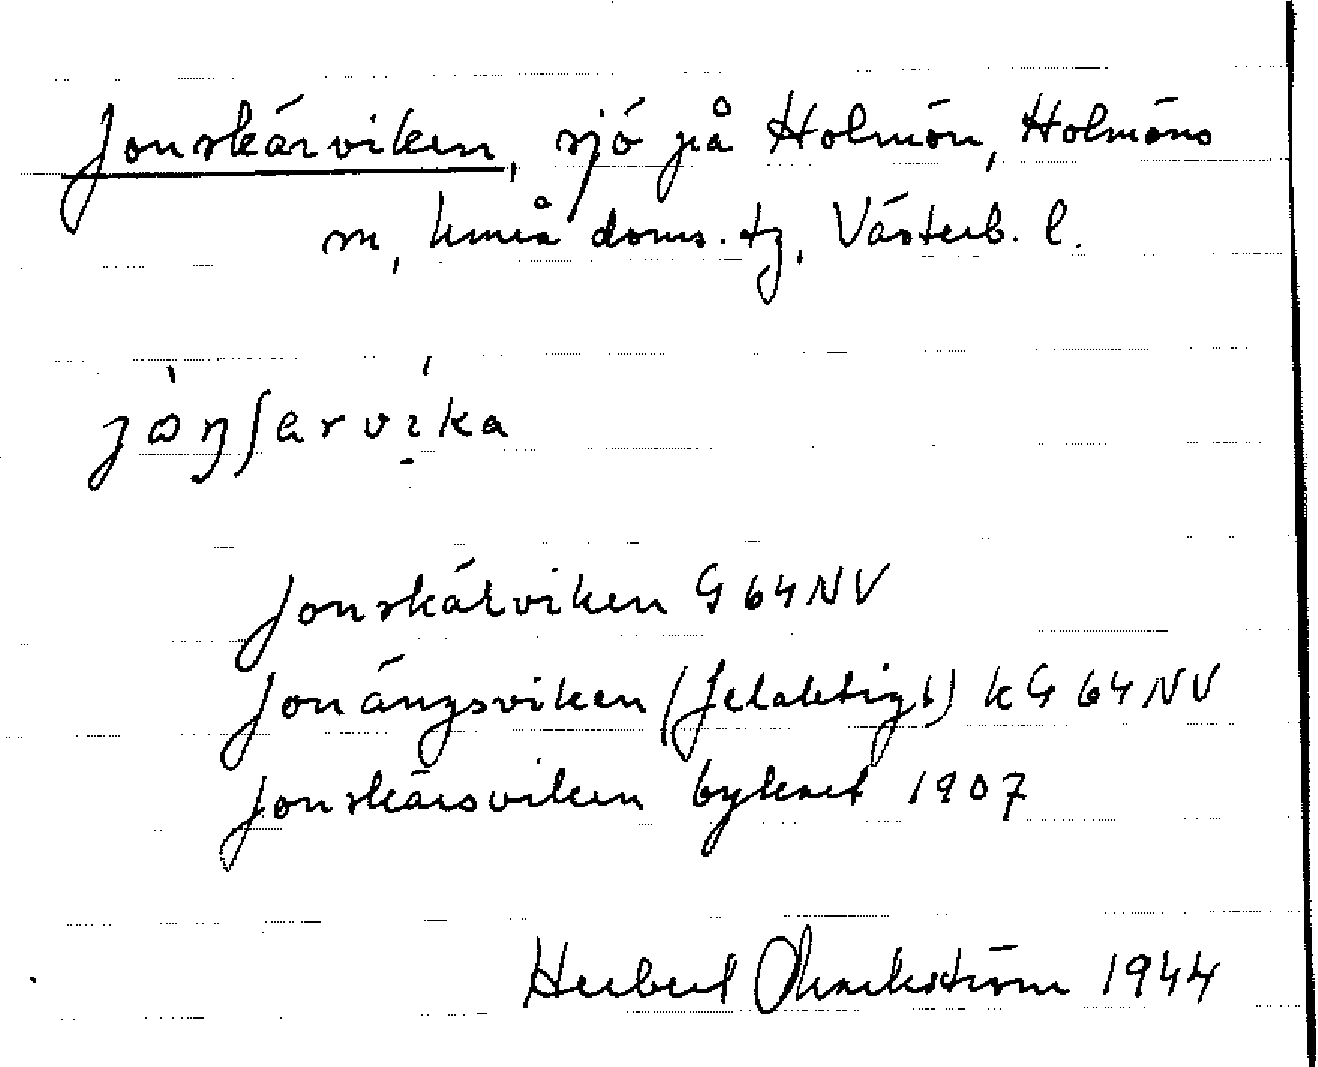 Jonskärviken, sjö på Holmön, Holmöns
m, Umeå doms. tg, Västerb. l.
Jonskärviken G 64 NV
Jonängsviken (felaktigt) kG 64 NV
Jonskärsviken bykart 1907
Herbert 1944